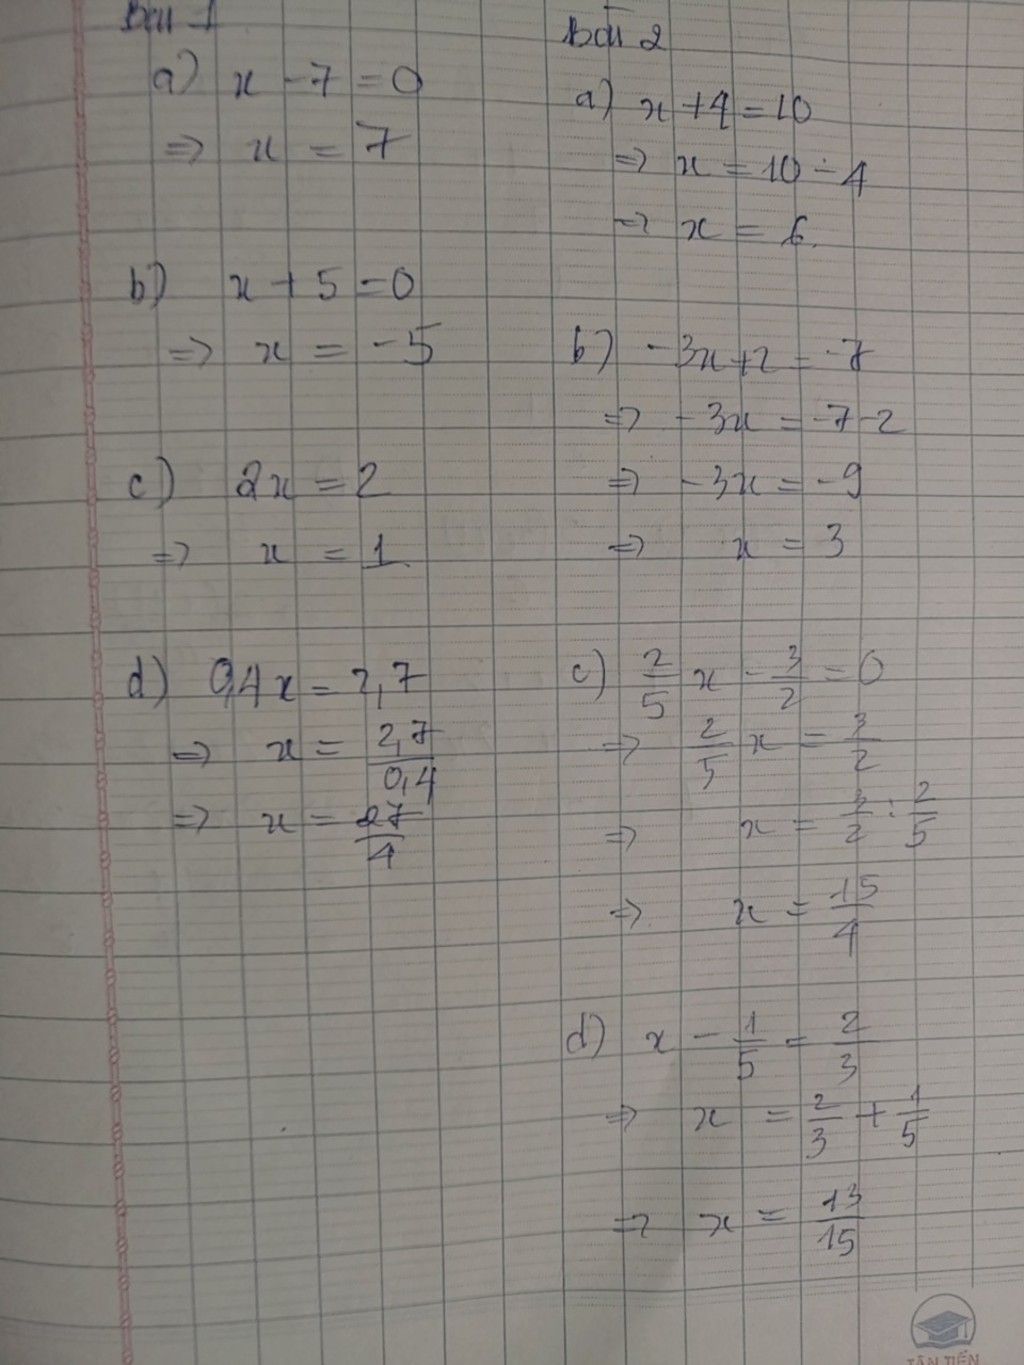 Bài 1
a) x - 7 = 0
=> x = 7
b) x + 5 = 0
=> x = -5
c) 2x = 2
=> x = 1
d) 0,4x = 2,7
=> x = 2,7/0,4
=> x = 27/4
Bài 2
a) x + 4 = 10
=> x = 10 - 4
=> x = 6.
b) -3x + 2 = -7
=> -3x = -7 - 2
=> -3x = -9
=> x = 3
c) 2/5 x - 3/2 = 0
=> 2/5 x = 3/2
=> x = 3/2 : 2/5
=> x = 15/4
d) x - 1/5 = 2/3
=> x = 2/3 + 1/5
=> x = 13/15
TÂN TIẾN